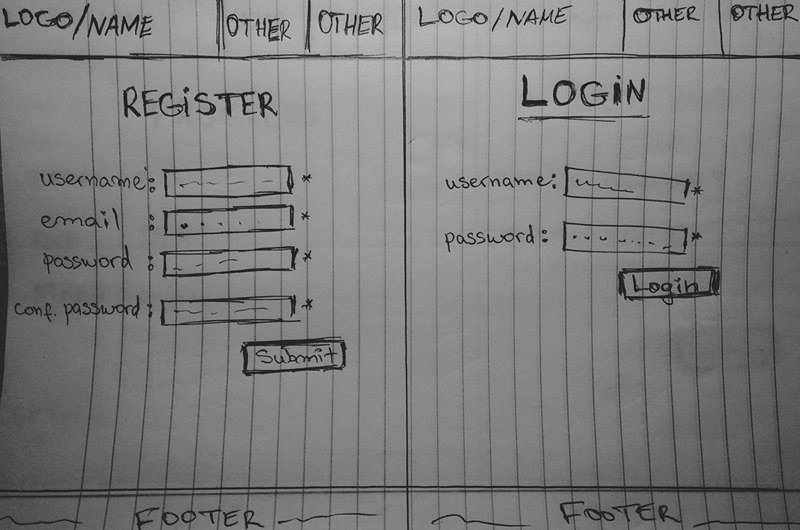 LOGO/NAME OTHER OTHER
REGISTER
username: *
email : *
password : *
conf. password : *
Submit
FOOTER
LOGO/NAME OTHER OTHER
LOGIN
username: *
password: *
Login
FOOTER